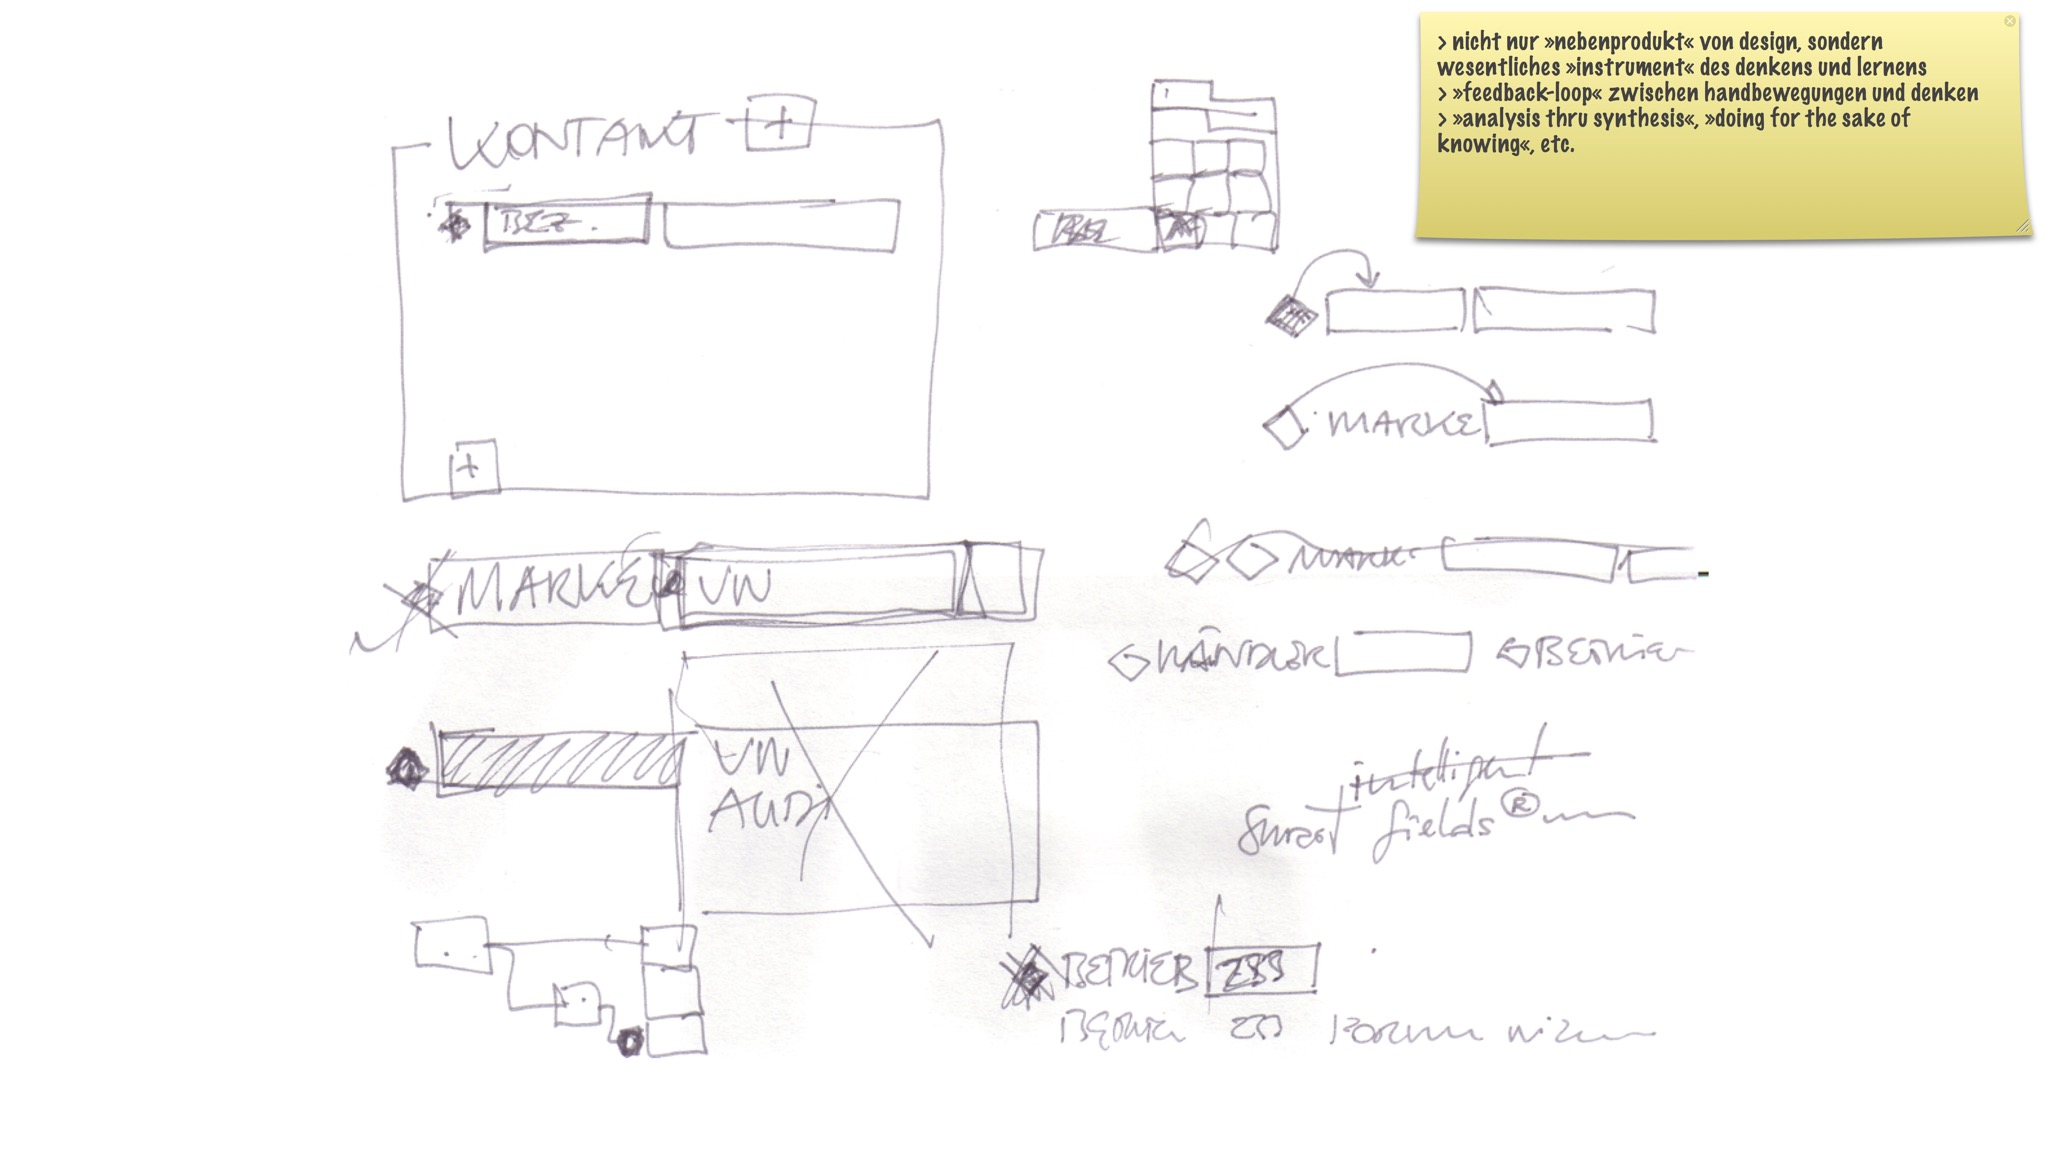 > nicht nur »nebenprodukt« von design, sondern
wesentliches »instrument« des denkens und lernens
> »feedback-loop« zwischen handbewegungen und denken
> »analysis thru synthesis«, »doing for the sake of
knowing«, etc.
KONTAKT +
BEZ.
+
MARKE
MARKE VW
MARK.
HÄNDLER
VW
AUDI
intelligent
smart fields®